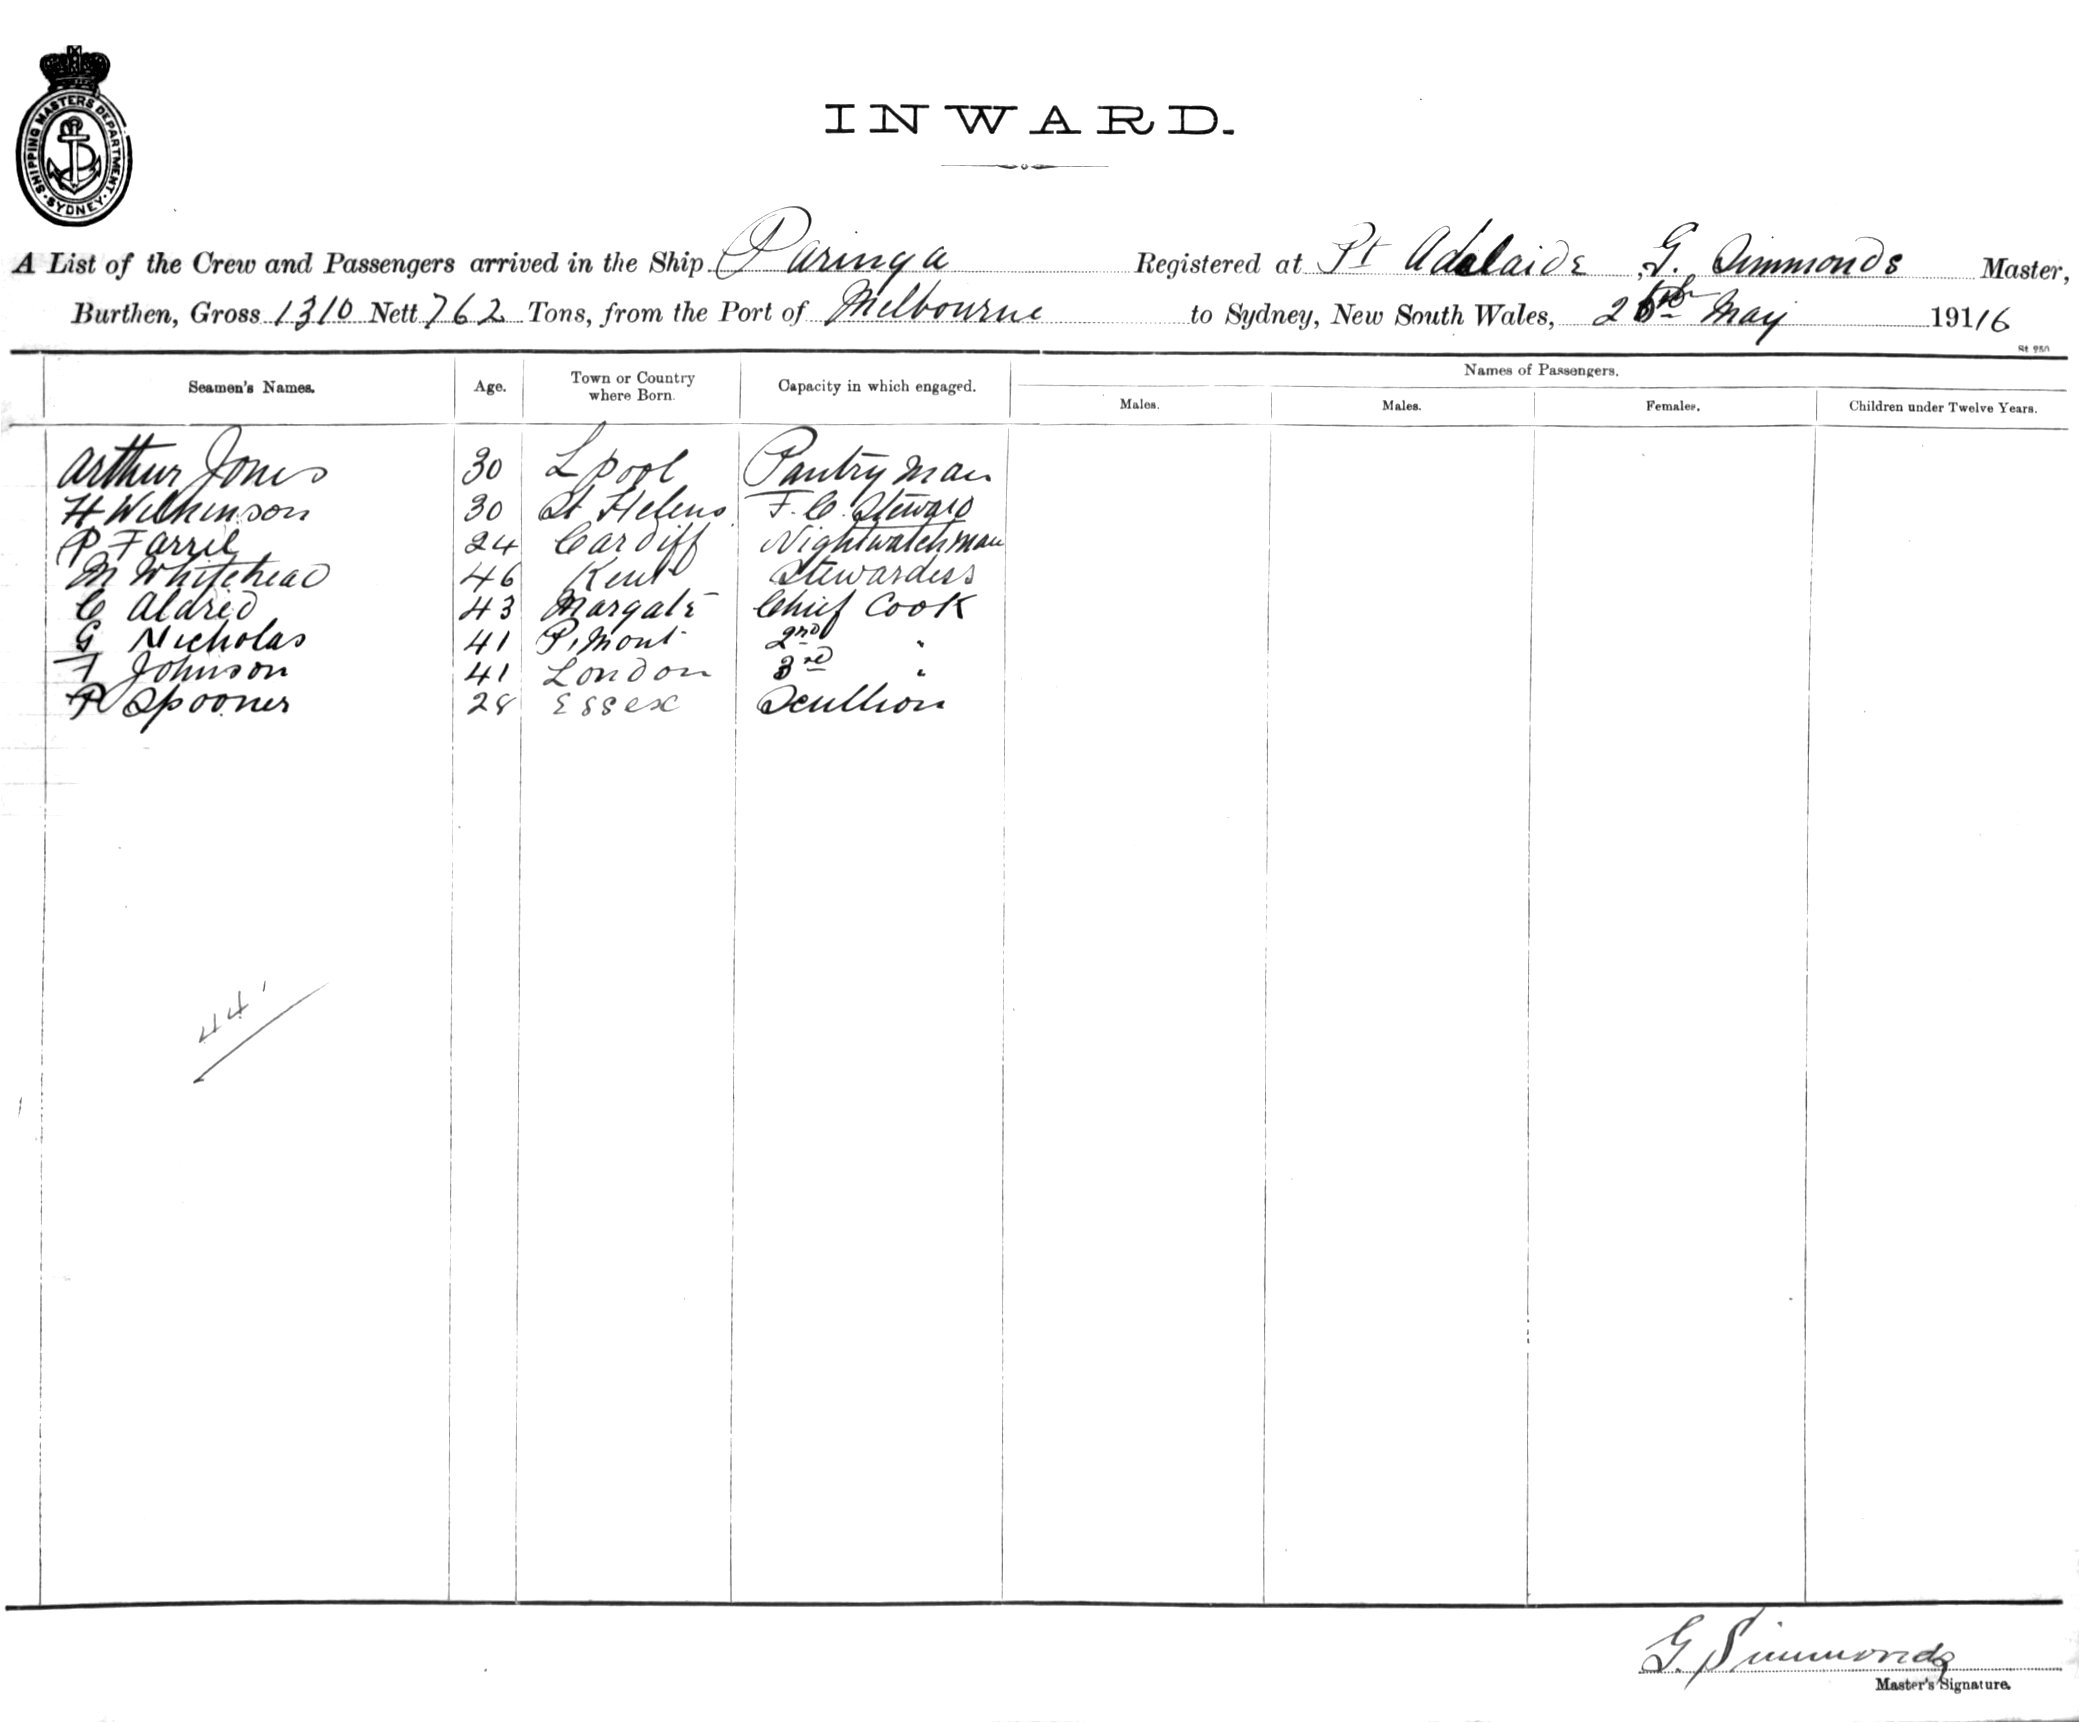 SHIPPING MASTERS DEPARTMENT
SYDNEY
INWARD.
A List of the Crew and Passengers arrived in the Ship Paringa Registered at Pt Adelaide, G. Simmonds Master,
Burthen, Gross 1310 Nett 762 Tons, from the Port of Melbourne to Sydney, New South Wales, May 19116
St 950
Seamen's Names. Age. Town or Country where Born. Capacity in which engaged. Names of Passengers.
Males. Males. Females. Children under Twelve Years.
Arthur Jones 30 Lpool Pantry man
H Wilkinson 30 St Helens F. C. Steward
P Farril 24 Cardiff Nightwatchman
M Whitehead 46 Kent Stewardess
C Aldred 43 Margate Chief Cook
G Nicholas 41 P. Mont 2nd "
F Johnson 41 London 3rd "
R Spooner 28 Essex Scullion
44
G. Simmonds
Master's Signature.